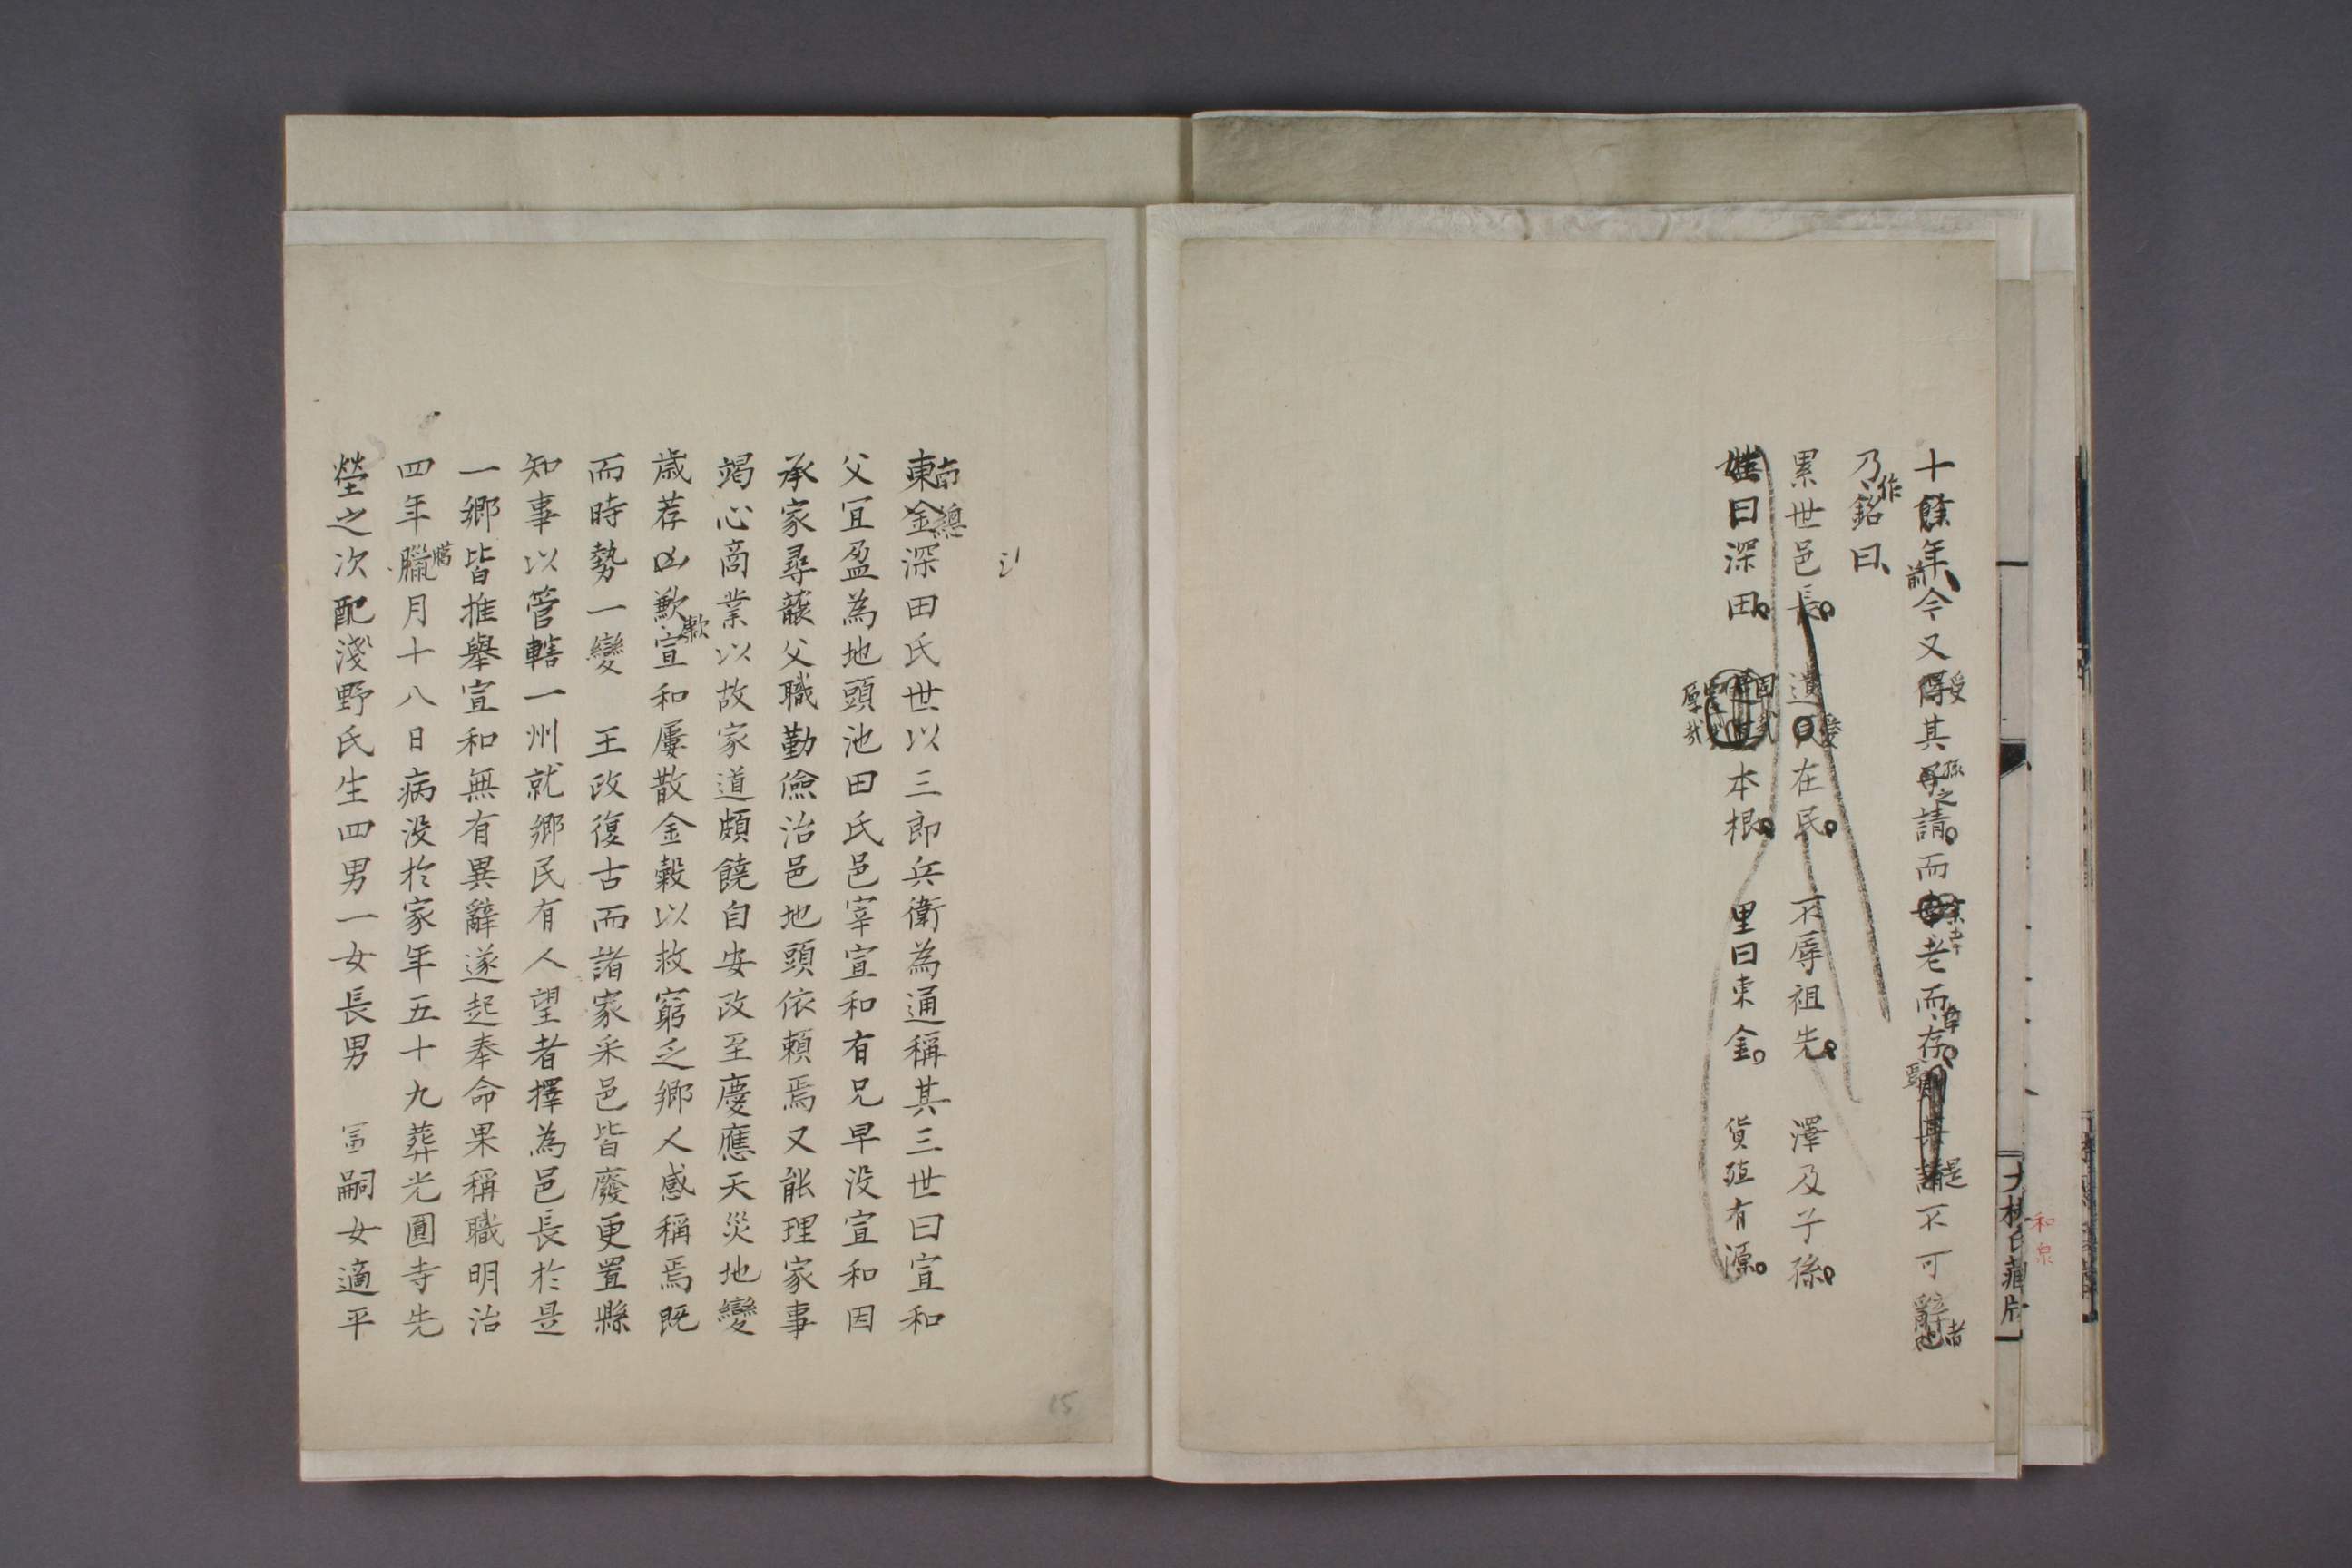 十餘年前今又受其孫之請而余幸老而存是不可辭者
乃作銘曰
累世邑長 遺愛在民 不辱祖先 澤及子孫
姓曰深田 固哉本根 里曰東金 貨殖有源
厚哉
和泉
大橋氏藏版
東金深田氏世以三郎兵衛為通稱其三世曰宣和
南總
父宜盈為地頭池田氏邑宰宣和有兄早没宣和因
承家尋襲父職勤儉治邑地頭依賴焉又能理家事
竭心商業以故家道頗饒自安政至慶應天災地變
歳荐凶歉宣和屢散金穀以救窮乏鄉人感稱焉既
歉
而時勢一變 王政復古而諸家采邑皆廢更置縣
知事以管轄一州就鄉民有人望者擇為邑長於是
一鄉皆推舉宣和無有異辭遂起奉命果稱職明治
四年臘月十八日病没於家年五十九葬光圓寺先
塋之次配淺野氏生四男一女長男 冨嗣女適平
15